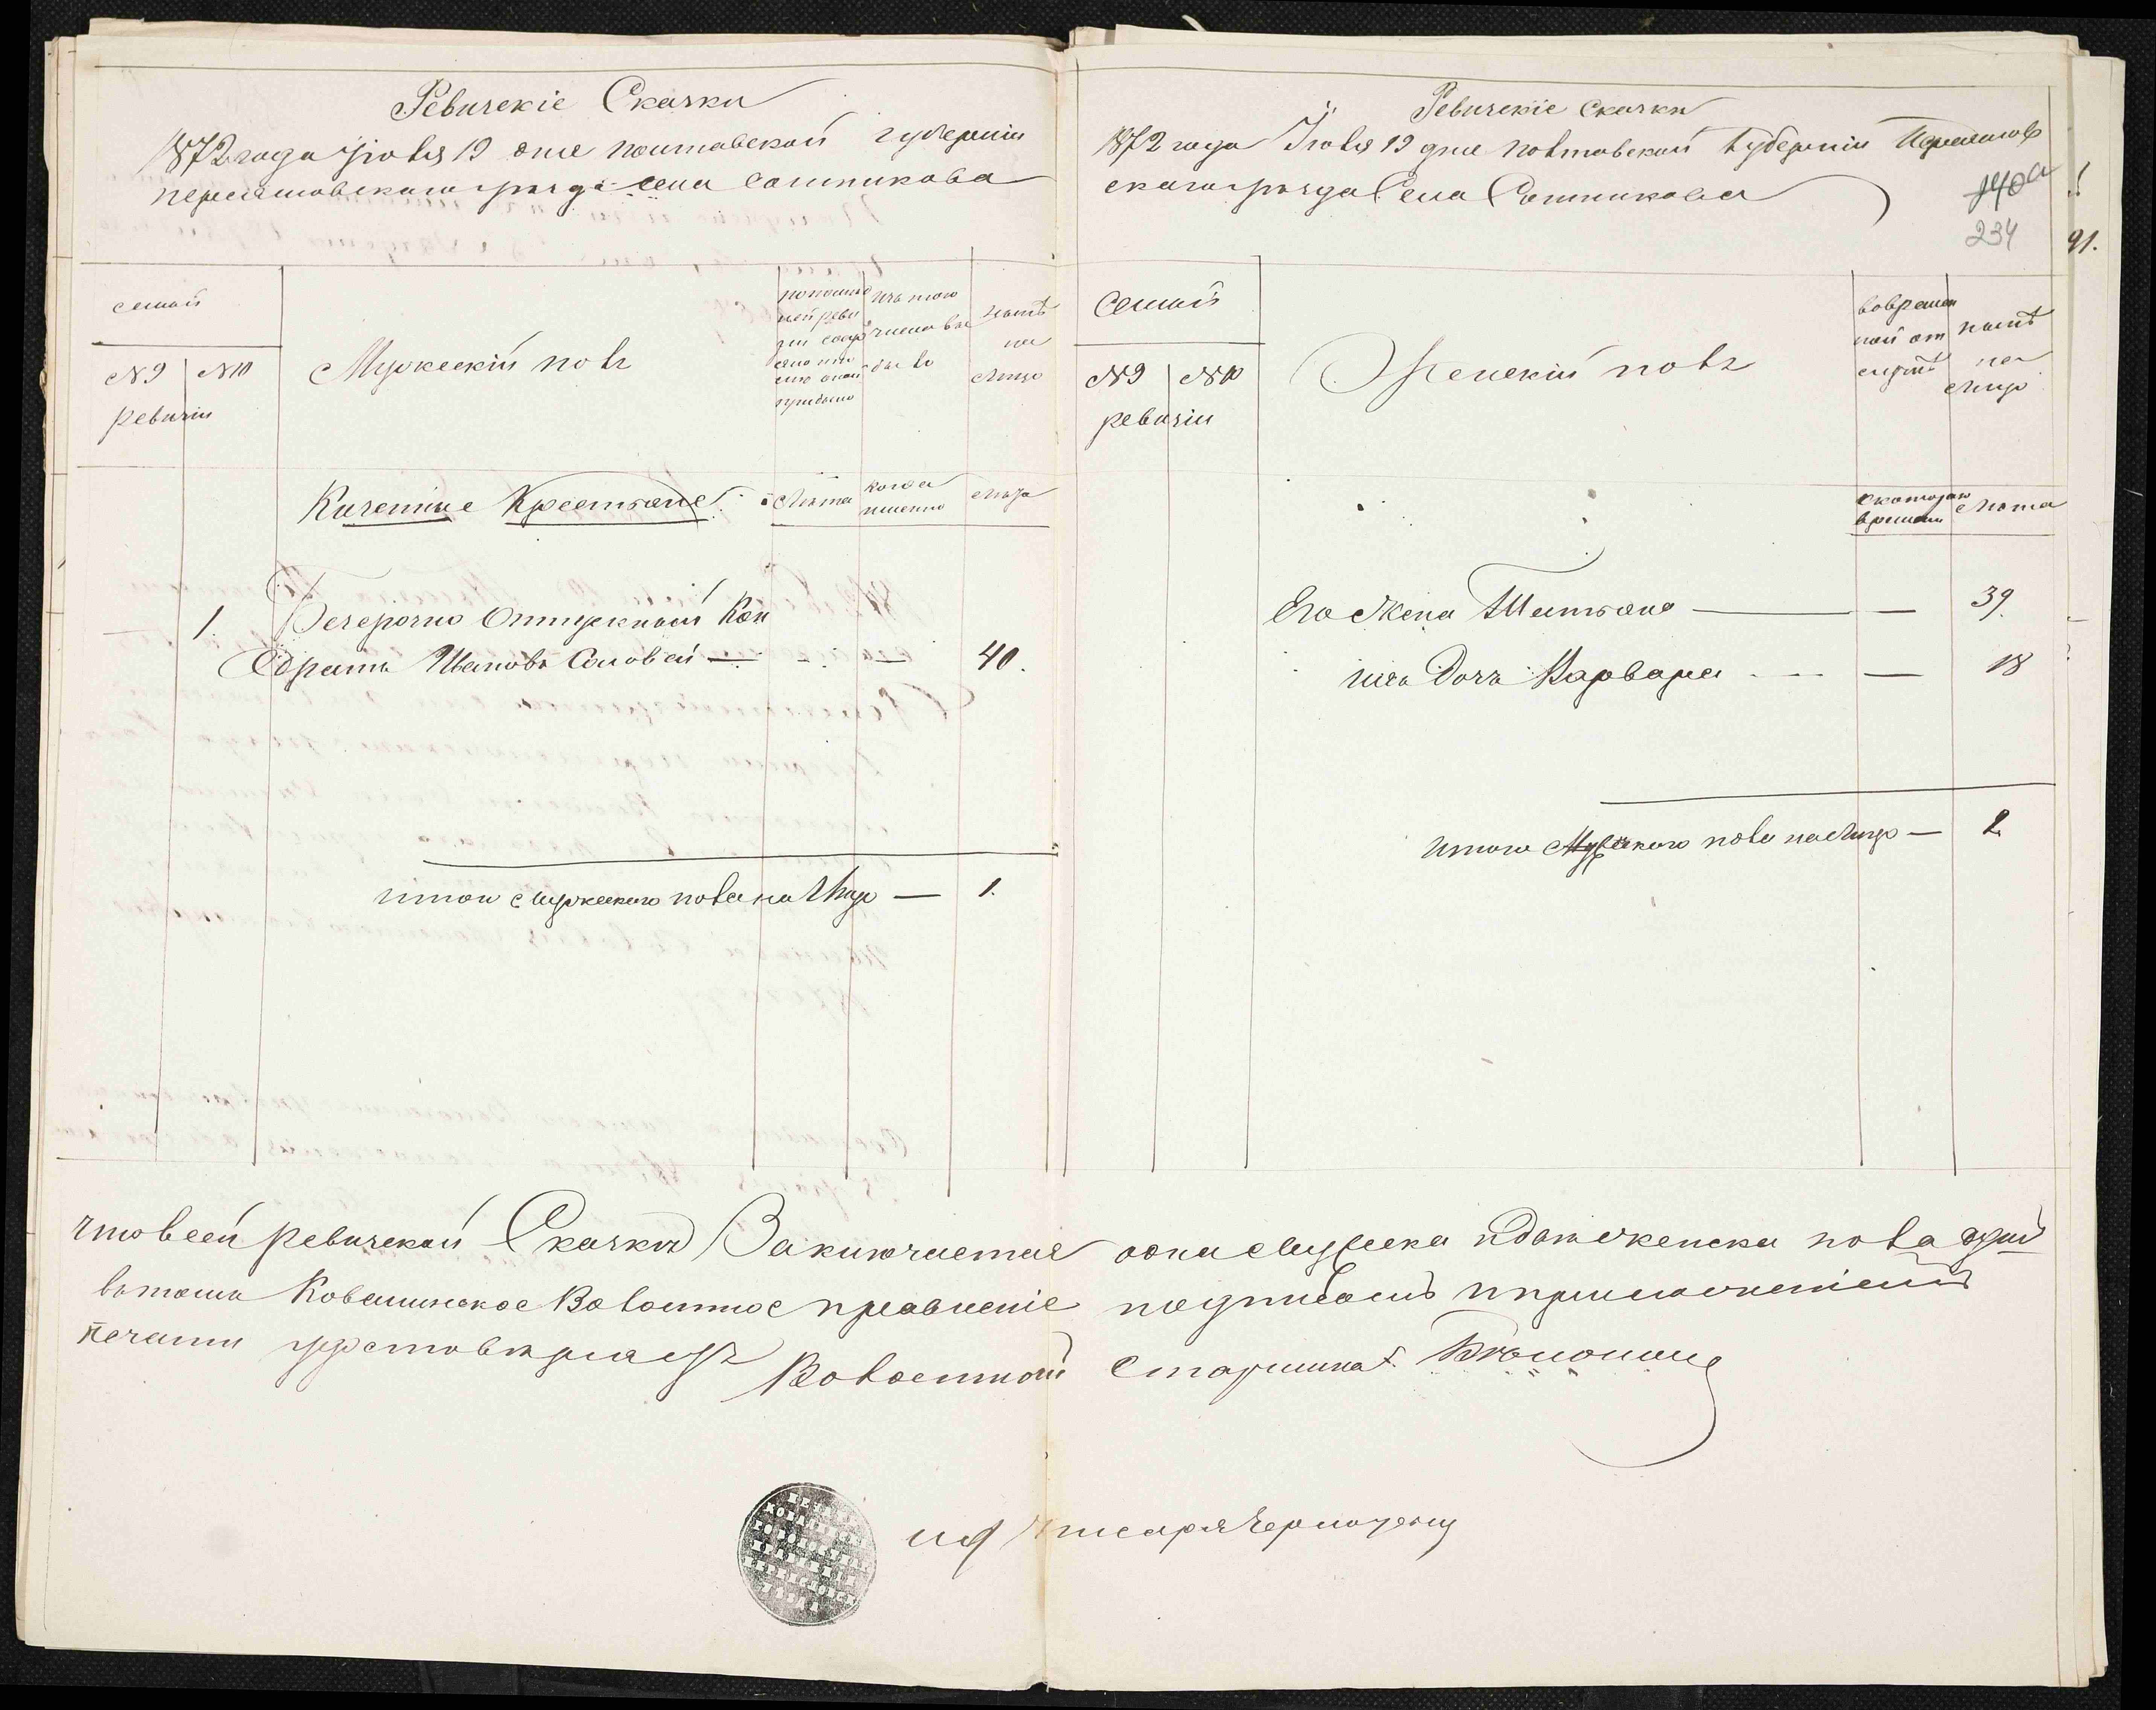 Ревизскіе Сказки
1872 года Іюля 19 дня полтавской губерніи
переяславского уезда села сотникова
семьи
№ 9 № 10
ревизіи
Мужескій полъ
по послед
ней реви
зіи состо
яло или
после оной
прибыло
изъ того
числа вы
было
Ныне
на
Лицо
Казенные Крестьяне
Лета
когда
именно
Лета
1. Безсрочно Отпускной Кон
Едратъ Ивановъ Соловей — — 40.
итого Мужеского пола на Лицо — 1.
Ревизскіе Сказки
1872 года Іюля 19 дня полтавской Губерніи Переяслав
скаго уезда Села Сотникова
140а
234
91.
Семьи
№ 9 № 10
ревизіи
Женскій полъ
во времен
ной от
лучке
ныне
на
Лицо
съ котораго
времени
Лета
Его Жена Татьяна — — 39.
ихъ Дочь Варвара — — 18
итого Мужеского пола на Лицо — 2.
что в сей ревизской Сказки Заключается одна Мужска и две женска пола душъ
в томъ Ковалинское Волостное правленіе подписомъ и приложеніемъ
печати удостоверяетъ
Волостной Старшина
и д писаря